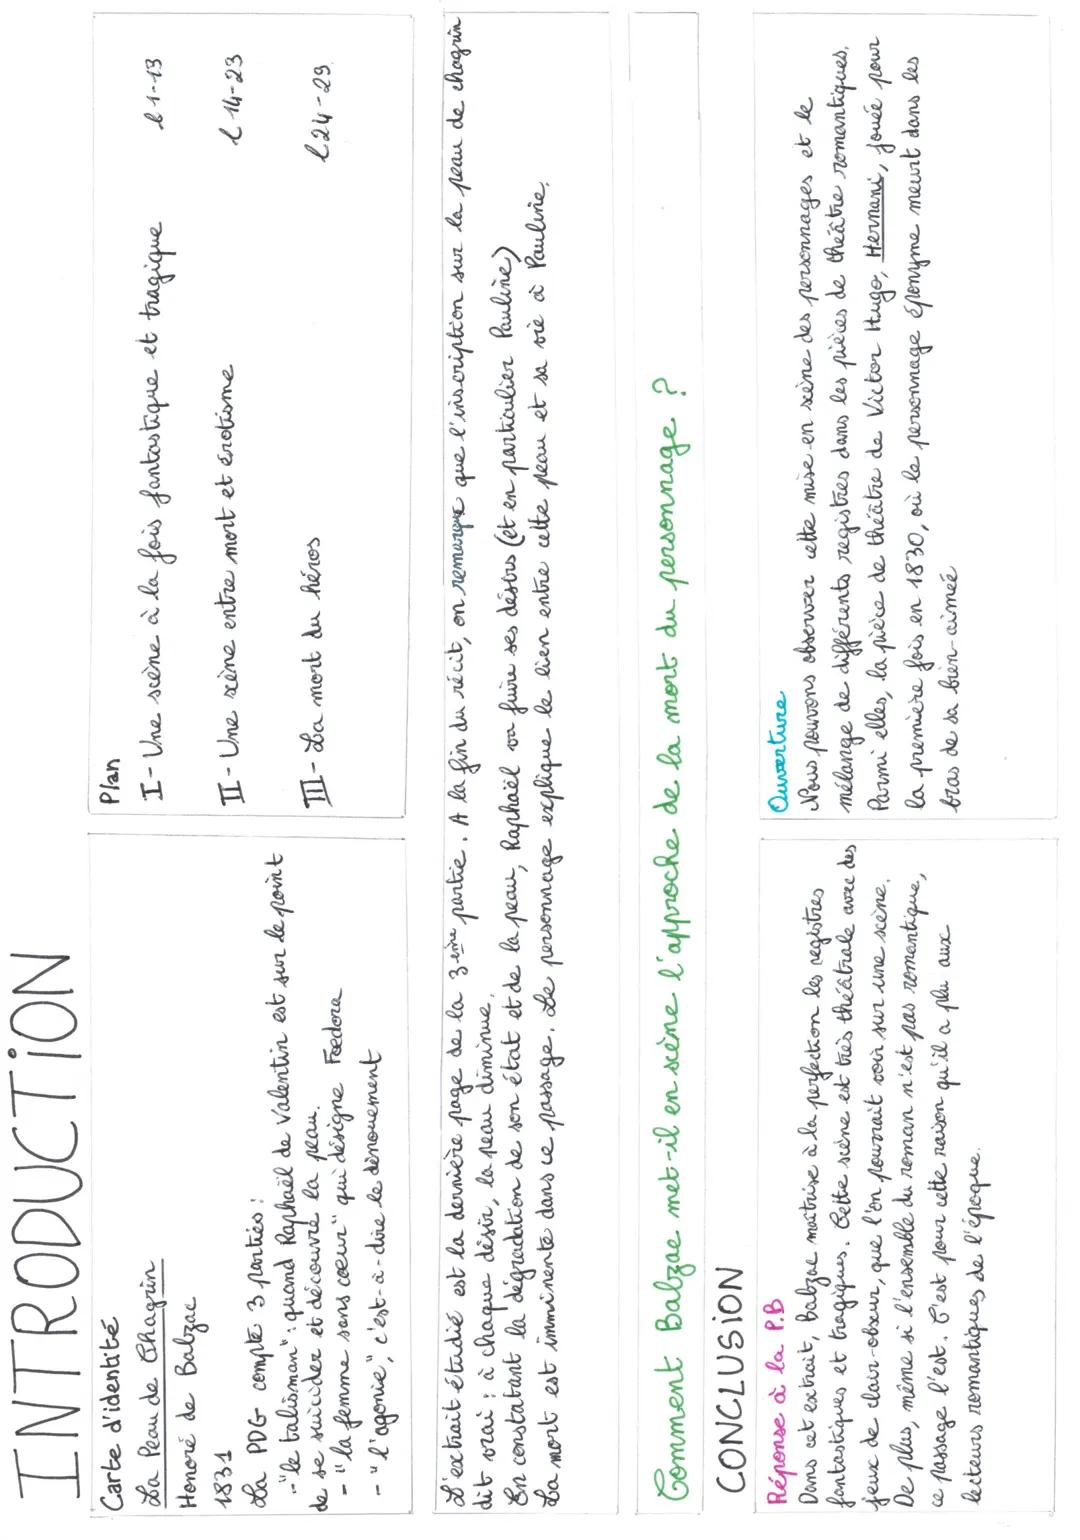 INTRODUCTION
Carte d'identité
La Peau de Chagrin
Honoré de Balzac
1831
La PDG compte 3 parties :
- "le talisman" : quand Raphaël de Valentin est sur le point
de se suicider et découvre la peau.
- "la femme sans coeur" qui désigne Foedora
- "l'agonie", c'est-à-dire le dénouement
Plan
I - Une scène à la fois fantastique et tragique l 1-13
II - Une scène entre mort et érotisme l 14-23
III - La mort du héros l 24-29
L'extrait étudié est la dernière page de la 3ème partie. A la fin du récit, on remarque que l'inscription sur la peau de chagrin
dit vrai : à chaque désir, la peau diminue.
En constatant la dégradation de son état et de la peau, Raphaël va fuire ses désirs (et en particulier Pauline)
La mort est imminente dans ce passage. Le personnage explique le lien entre cette peau et sa vie à Pauline.
Comment Balzac met-il en scène l'approche de la mort du personnage ?
CONCLUSION
Réponse à la P.B
Dans cet extrait, Balzac maîtrise à la perfection les registres
fantastiques et tragiques. Cette scène est très théâtrale avec des
jeux de clair-obscur, que l'on pourrait voir sur une scène.
De plus, même si l'ensemble du roman n'est pas romantique,
ce passage l'est. C'est pour cette raison qu'il a plu aux
lecteurs romantiques de l'époque.
Ouverture
Nous pouvons observer cette mise en scène des personnages et le
mélange de différents registres dans les pièces de théâtre romantiques.
Parmi elles, la pièce de théâtre de Victor Hugo, Hernani, jouée pour
la première fois en 1830, où le personnage éponyme meurt dans les
bras de sa bien-aimée